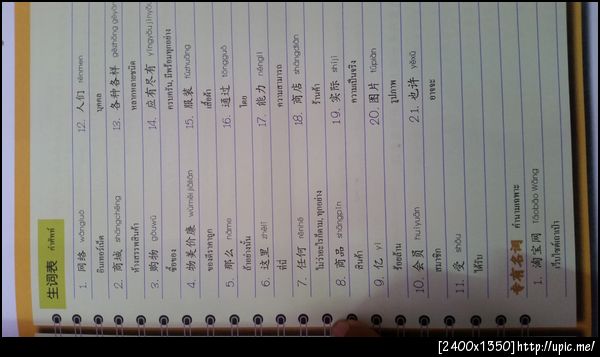 生词表 คำศัพท์
1. 网络 wǎngluò
อินเทอร์เน็ต
2. 商城 shāngchéng
ห้างสรรพสินค้า
3. 购物 gòuwù
ซื้อของ
4. 物美价廉 wùměi jiàlián
ของดีราคาถูก
5. 那么 nàme
ถ้าอย่างนั้น
6. 这里 zhèlǐ
ที่นี่
7. 任何 rènhé
ไม่ว่าอะไรก็ตาม, ทุกอย่าง
8. 商品 shāngpǐn
สินค้า
9. 亿 yì
ร้อยล้าน
10. 会员 huìyuán
สมาชิก
11. 受 shòu
ได้รับ
12. 人们 rénmen
บุคคล
13. 各种各样 gèzhǒng gèyàng
หลากหลายชนิด
14. 应有尽有 yīngyǒu jìnyǒu
ครบครัน, มีพร้อมทุกอย่าง
15. 服装 fúzhuāng
เสื้อผ้า
16. 通过 tōngguò
โดย
17. 能力 nénglì
ความสามารถ
18. 商店 shāngdiàn
ร้านค้า
19. 实际 shíjì
ความเป็นจริง
20. 图片 túpiàn
รูปภาพ
21. 也许 yěxǔ
อาจจะ
专有名词 คำนามเฉพาะ
1. 淘宝网 Táobǎo Wǎng
เว็บไซต์เถาเป่า
[2400x1350]http://upic.me/